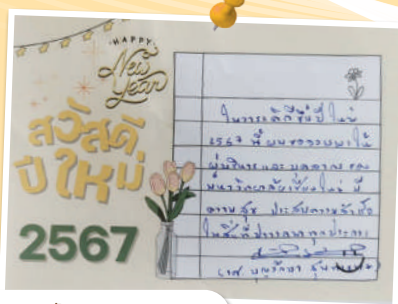 HAPPY
New
Year
สวัสดี
ปีใหม่
2567
ในวาระดิถีขึ้นปีใหม่
2567 นี้ ผมขออวยพรให้
ผู้บริหารและบุคลากรของ
มหาวิทยาลัยเชียงใหม่ มี
ความสุข ประสบความสำเร็จ
ในสิ่งที่ปรารถนาทุกประการ